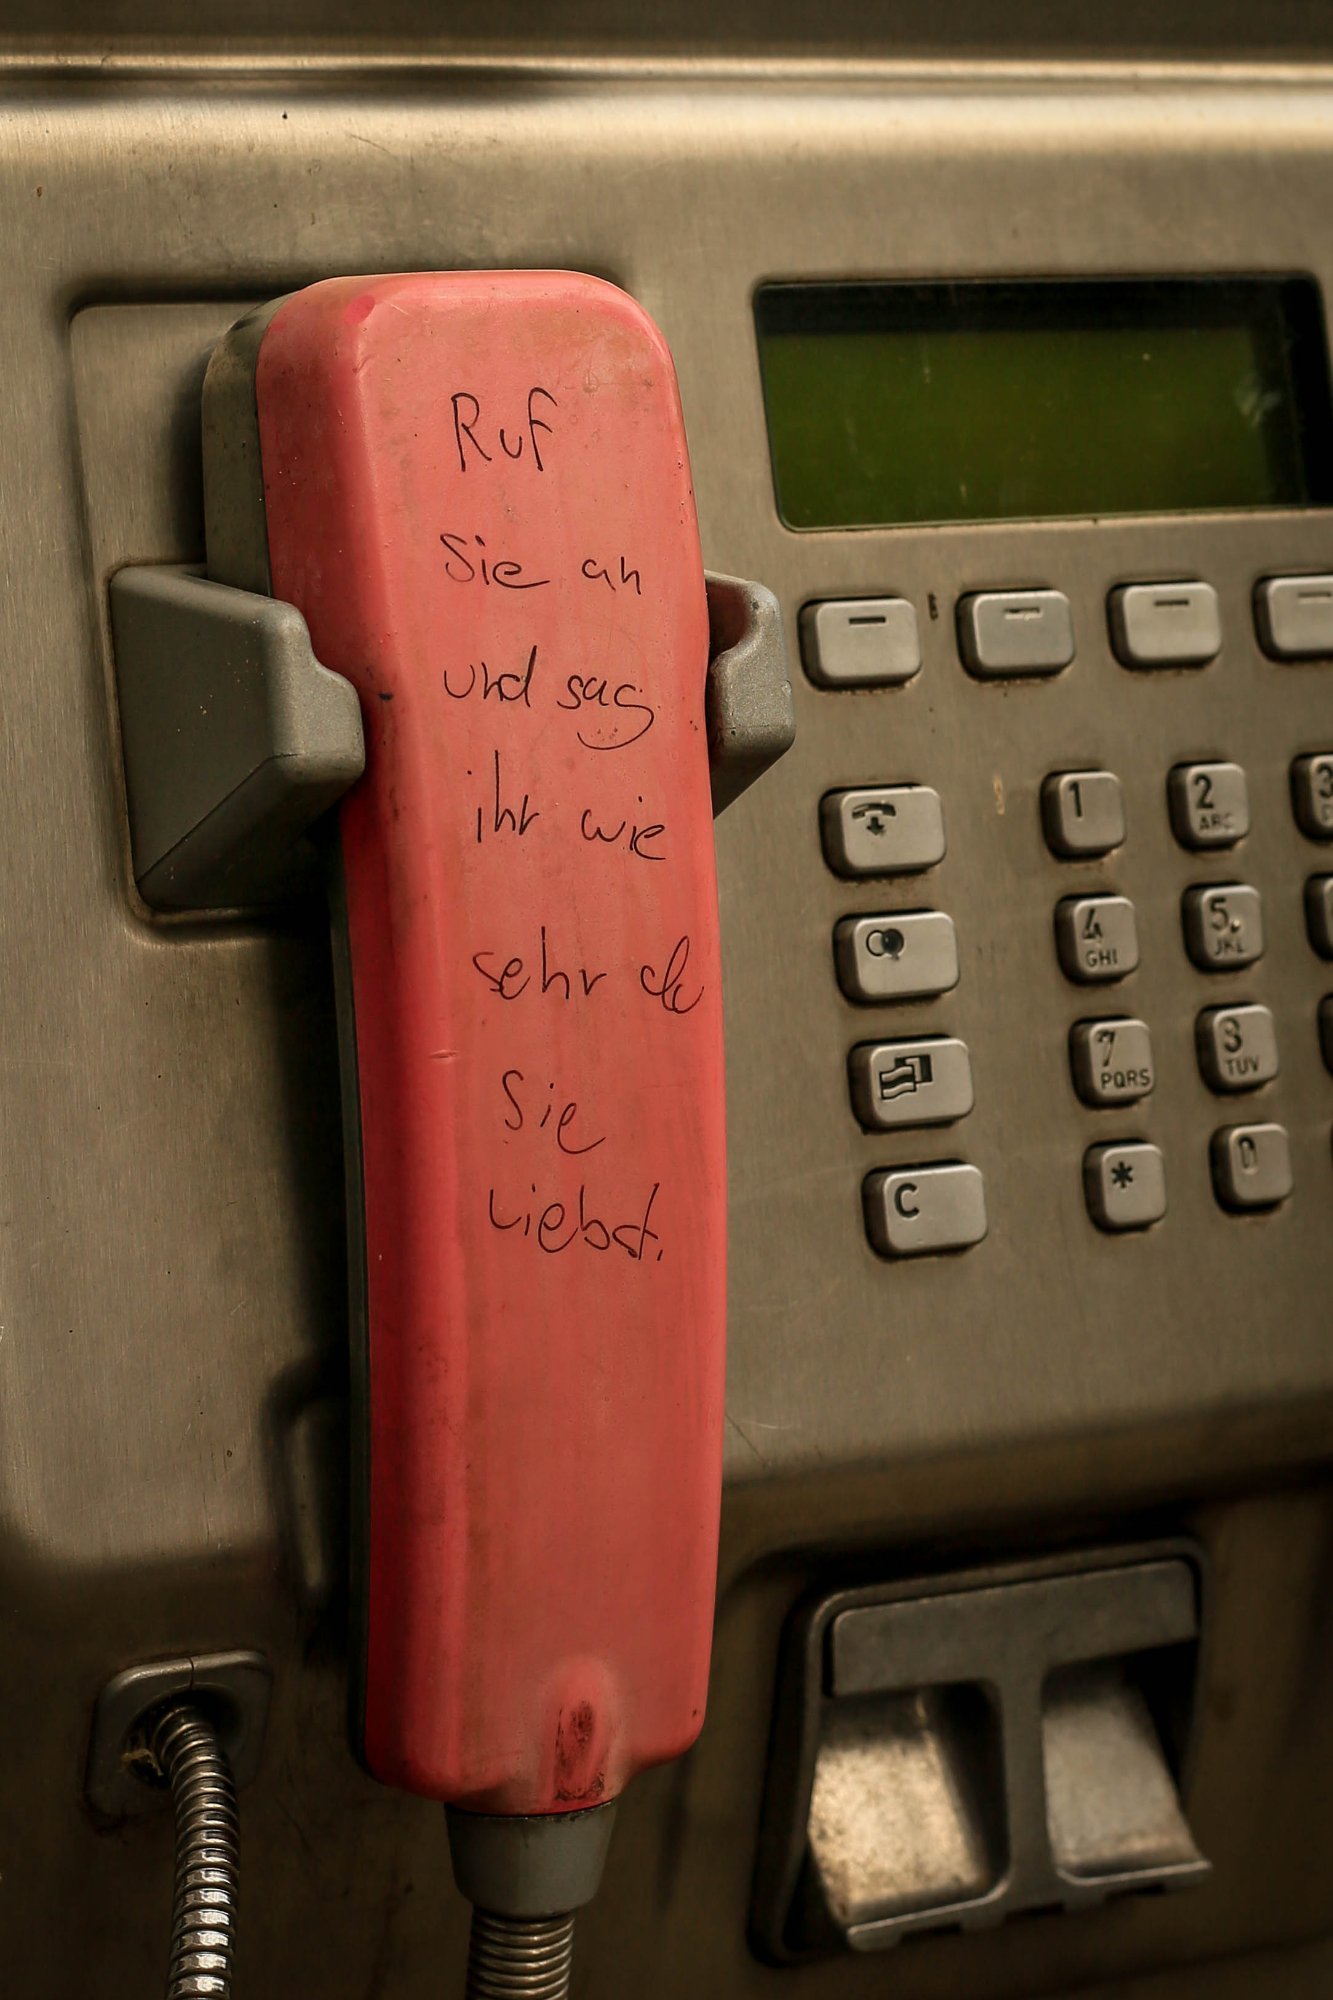 Ruf
Sie an
und sag
ihr wie
sehr du
Sie
Liebst.
1
2
ABC
3
4
GHI
5
JKL
7
PQRS
8
TUV
*
0
C